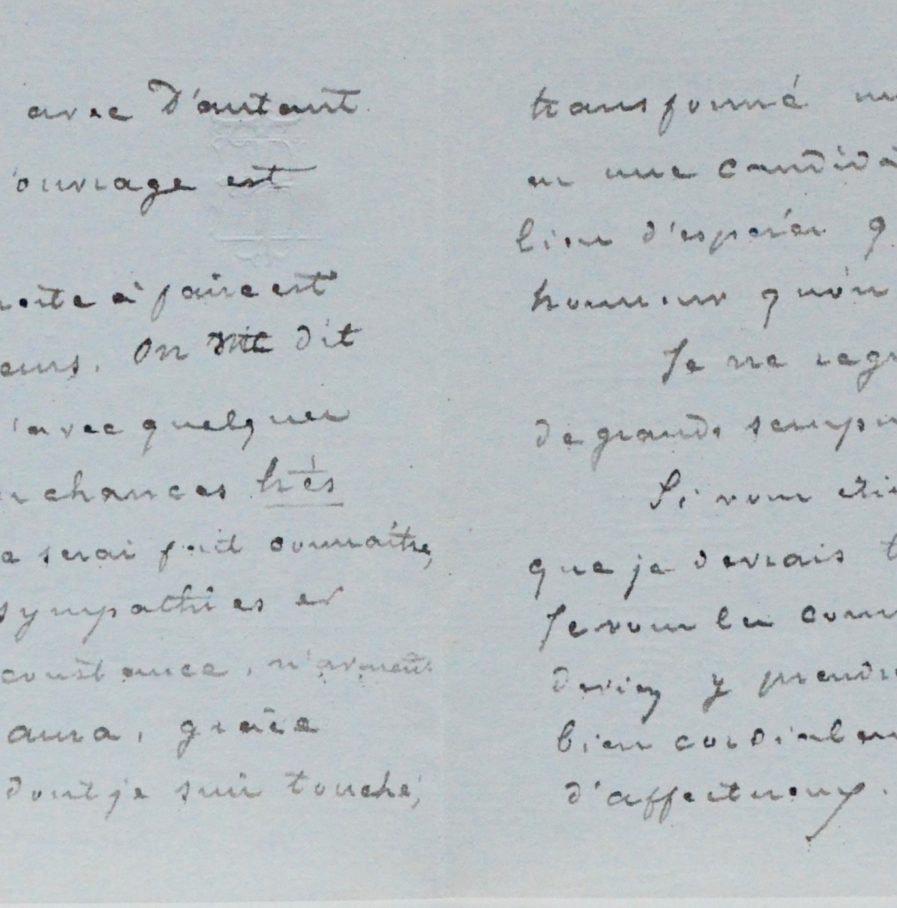 avec d'autant
ouvrage est
à faire est
eurs. On me dit
avec quelques
chances très
serai fait connaître,
sympathies et
constance, n'avaient
aura, grâce
dont je suis touché,
transformé
en une candida
lieu d'espérer q
honneur qu'on
Je ne regr
de grands scrupu
Si vous
que je devrais t
Je vous les comm
deviez y prendre
bien cordialem
d'affectueux.